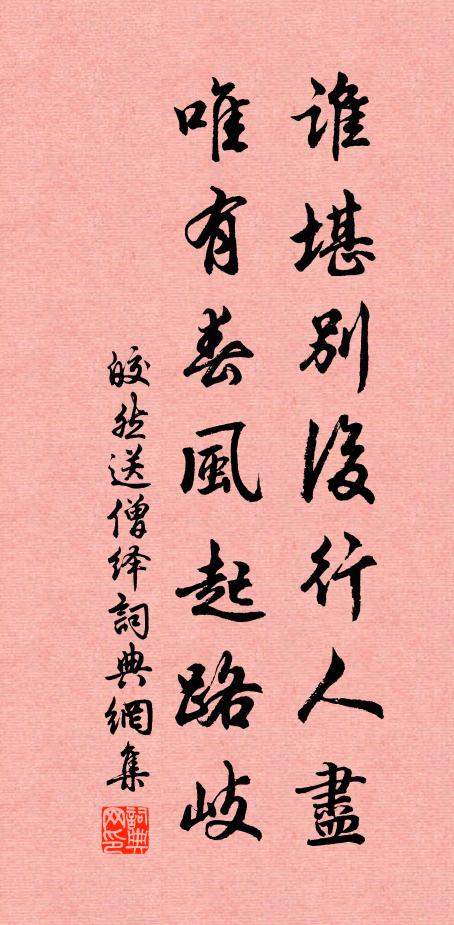 誰堪別後行人盡
唯有春風起路歧
皎然送僧绎詞典網集
詞典網印